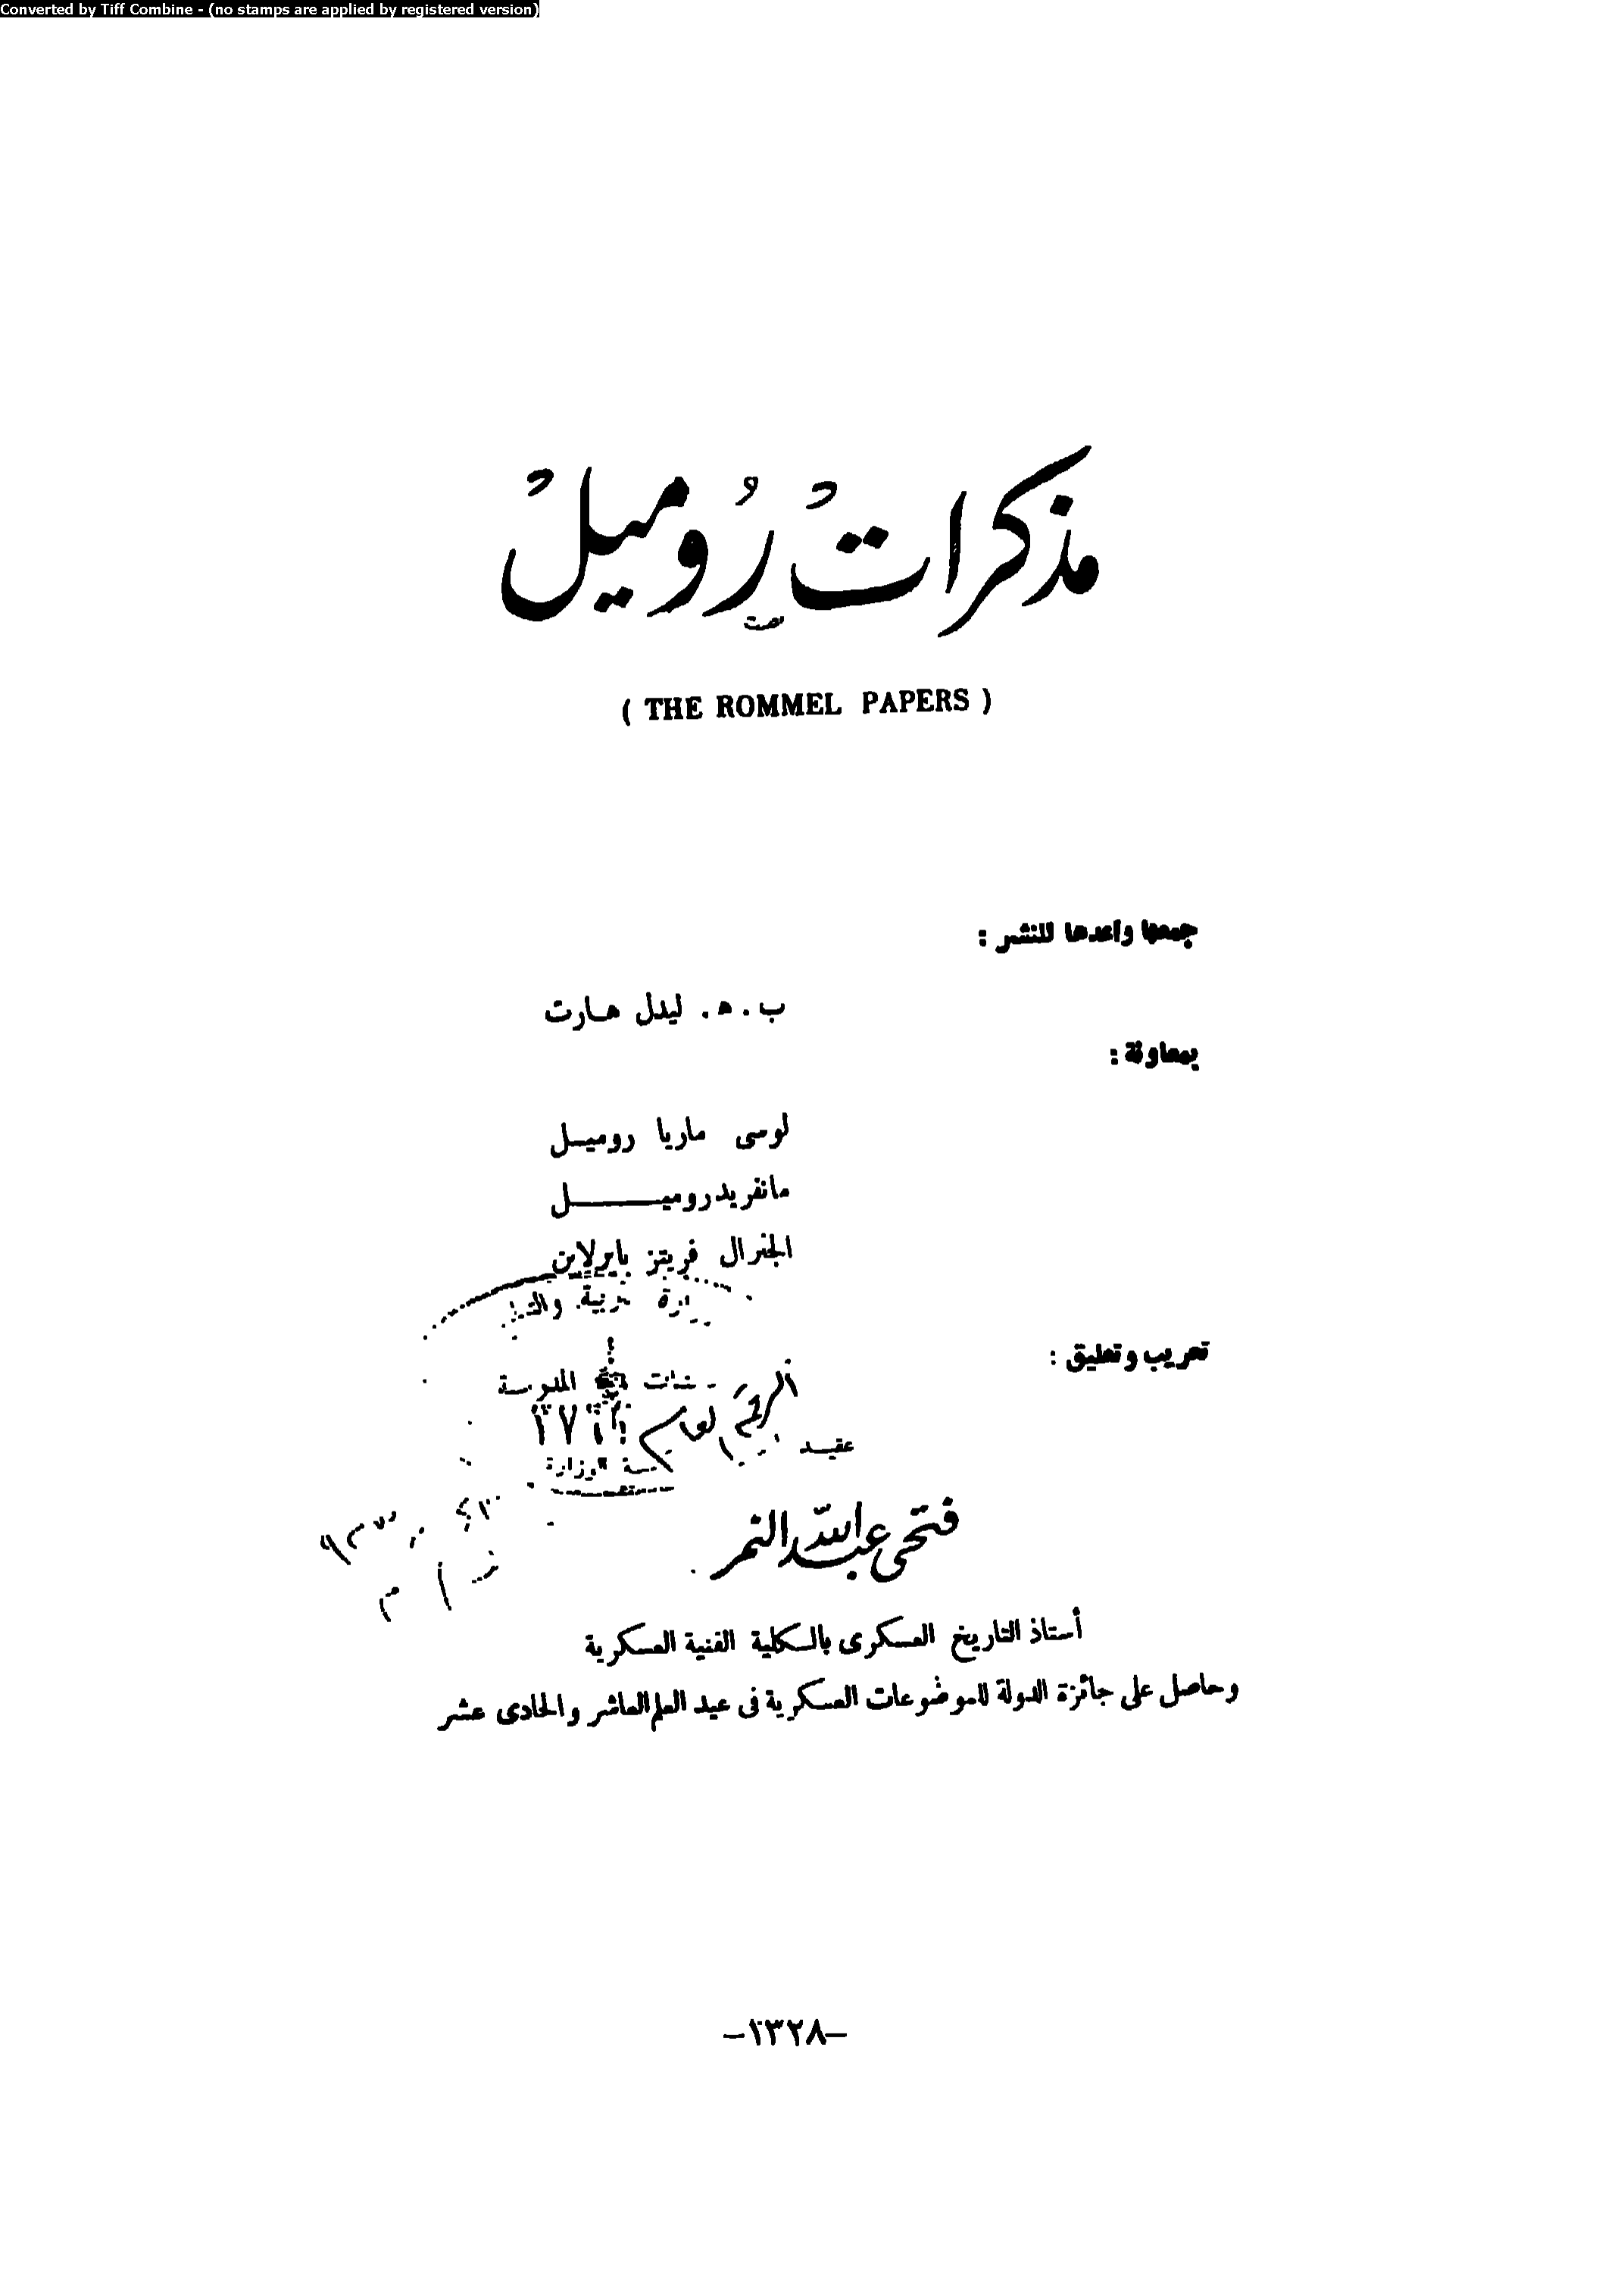 Converted by Tiff Combine - (no stamps are applied by registered version)
مذكراتْ رُوميلْ
( THE ROMMEL PAPERS )
جمعها واعدها للنشر :
ب . ه . ليدل هارت
بمعاونة :
لوسى ماريا روميل
مانفريد روميل
الجنرال فريتز بايرلاين
تعريب وتعليق :
المدرسة
الرقم العام
عقيد
فتحى عبد الله النمر
أستاذ التاريخ العسكرى بالكلية الفنية العسكرية
وحاصل على جائزة الدولة للموضوعات العسكرية فى عيد العلم العاشر والحادى عشر
–١٣٢٨–